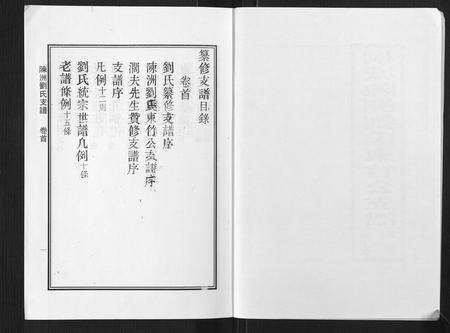 纂修支譜目錄
卷首
劉氏纂修支譜序
陳洲劉氏東竹公支譜序
澗夫先生贊修支譜序
支譜序
凡例十二則
劉氏統宗世譜凡例十條
老譜條例十五條
陳洲劉氏支譜 卷首
一